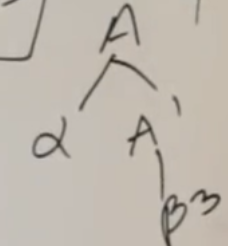 A
α A'
β³